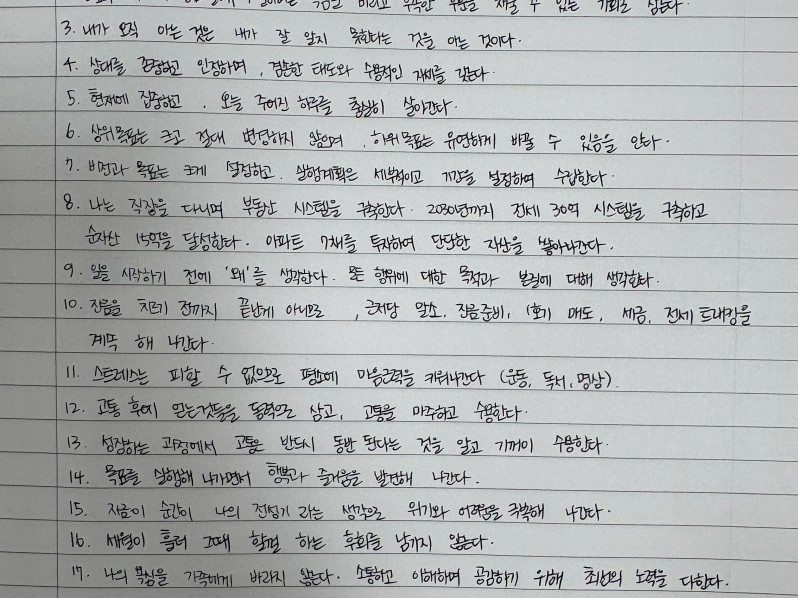 수 있는 기회로 삼는다.
3. 내가 오직 아는 것은 내가 잘 알지 못한다는 것을 아는 것이다.
4. 상대를 존중하고 인정하며, 겸손한 태도와 수용적인 자세를 갖는다.
5. 현재에 집중하고, 오늘 주어진 하루를 충실히 살아간다.
6. 상위목표는 크고 절대 변경하지 않으며, 하위목표는 유연하게 바꿀 수 있음을 안다.
7. 비전과 목표는 크게 설정하고, 실행계획은 세부적이고 기간을 설정하여 수립한다.
8. 나는 직장을 다니며 부동산 시스템을 구축한다. 2030년까지 전세 30억 시스템을 구축하고
순자산 15억을 달성한다. 아파트 7채를 투자하여 단단한 자산을 쌓아나간다.
9. 일을 시작하기 전에 '왜'를 생각한다. 모든 행위에 대한 목적과 본질에 대해 생각한다.
10. 잔금을 치르기 전까지 끝난게 아니므로, 근저당 말소, 잔금준비, 1호기 매도, 세금, 전세 트래킹을
계속 해 나간다.
11. 스트레스는 피할 수 없으므로 평소에 마음근력을 키워나간다 (운동, 독서, 명상).
12. 고통 후에 얻는것들을 동력으로 삼고, 고통을 마주하고 수용한다.
13. 성장하는 과정에서 고통은 반드시 동반 된다는 것을 알고 기꺼이 수용한다.
14. 목표를 실행해 나가면서 행복과 즐거움을 발견해 나간다.
15. 지금이 순간이 나의 전성기 라는 생각으로 위기와 어려움을 극복해 나간다.
16. 세월이 흘러 그때 할걸 하는 후회를 남기지 않는다.
17. 나의 욕심을 가족에게 바라지 않는다. 소통하고 이해하며 공감하기 위해 최선의 노력을 다한다.